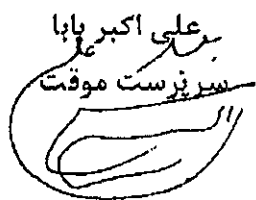 علی اکبر بابا
سرپرست موقت